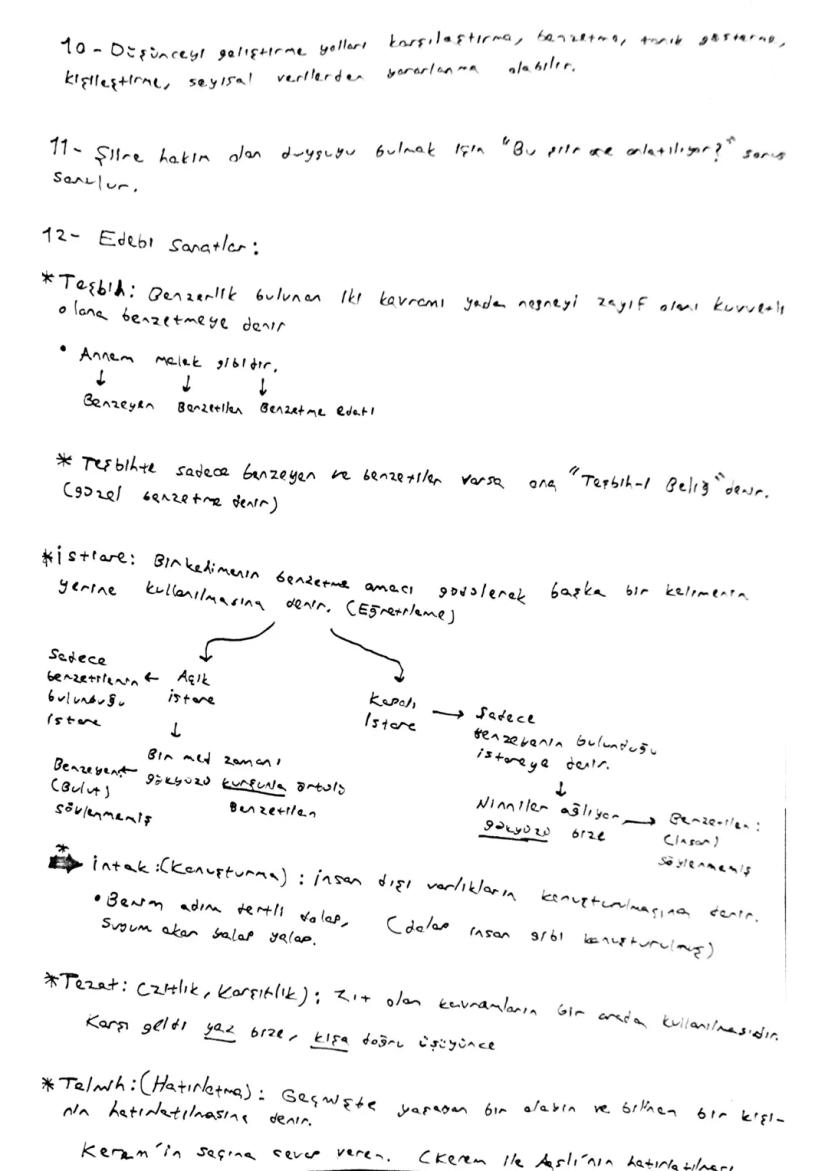 10- Düşünceyi geliştirme yolları karşılaştırma, benzetme, tanık gösterme,
kişileştirme, sayısal verilerden yararlanma olabilir.
11- Şiire hakim olan duyguyu bulmak için "Bu şiir ne anlatılıyor?" sorus
sorulur.
12- Edebi Sanatlar:
*Teşbih: Benzerlik bulunan iki kavramı yada nesneyi zayıf olanı kuvvetli
olana benzetmeye denir
• Annem melek gibidir.
↓ ↓ ↓
Benzeyen Benzetilen Benzetme edatı
* Teşbihte sadece benzeyen ve benzetilen varsa ona "Teşbih-i Beliğ" denir.
(güzel benzetme denir)
*istiare: Bir kelimenin benzetme amacı güdülerek başka bir kelimenin
yerine kullanılmasına denir. (Eğretileme)
Sadece
benzetilenin ← Açık
bulunduğu istiare
istiare ↓
Bin med zamanı
gökyüzü kurşunla örtülü
Benzetilen
Benzeyen ←
(Bulut)
söylenmemiş
Kapalı → Sadece
istiare benzeyenin bulunduğu
istiareye denir.
↓
Ninniler ağlıyor → Benzetilen:
gökyüzü bize (insan)
söylenmemiş
* intak: (Konuşturma): insan dışı varlıkların konuşturulmasına denir.
• Benim adım dertli dolap, (dolap insan gibi konuşturulmuş)
Suyum akar yalap yalap.
*Tezat: (Zıtlık, Karşıtlık): Zıt olan kavramların bir arada kullanılmasıdır.
Karşı geldi yaz bize, kışa doğru üşüyünce
*Telmih: (Hatırlatma): Geçmişte yaşayan bir olayın ve bilinen bir kişi-
nin hatırlatılmasına denir.
Kerem'in sazına cevap veren. (Kerem ile Aslı'nın hatırlatılması